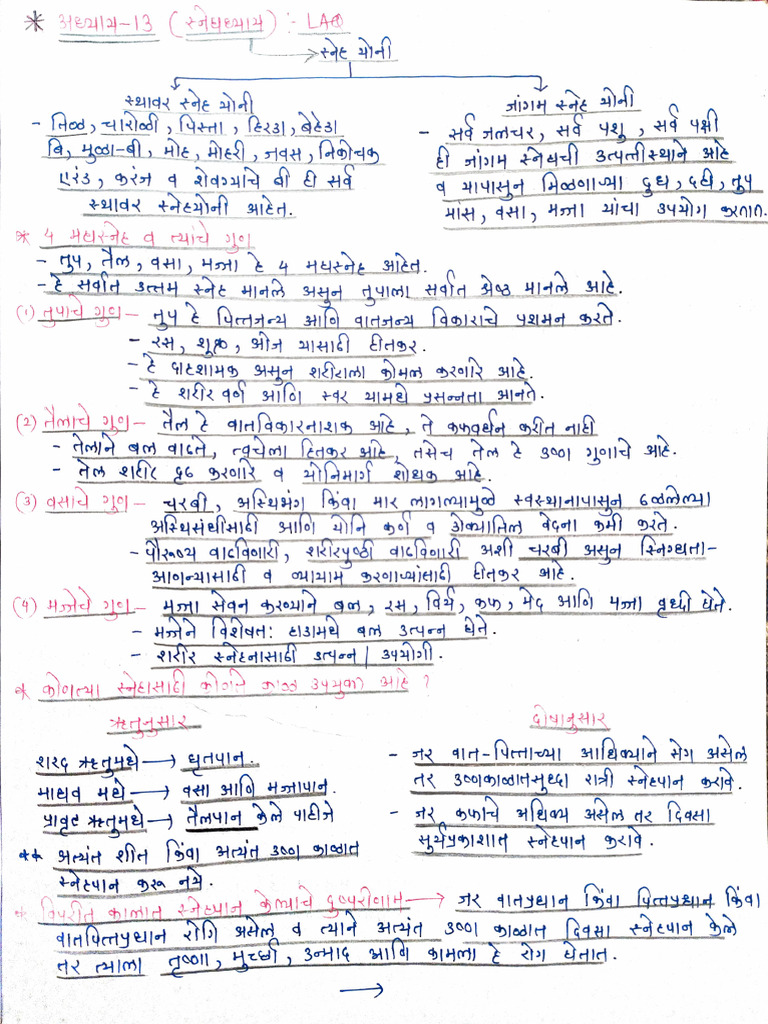 * अध्याय-13 (स्नेहध्याय) :- LAQ
स्नेह योनी
स्थावर स्नेह योनी
- तिळ, चारोळी, पिस्ता, हिरडा, बेहेडा
बि, मुळा-बी, मोह, मोहरी, जवस, निकोचक
एरंड, करंज व शेवग्याचे बी ही सर्व
स्थावर स्नेहयोनी आहेत.
जांगम स्नेह योनी
- सर्व जलचर, सर्व पशु, सर्व पक्षी
ही जांगम स्नेहाची उत्पत्तीस्थाने आहे
व यापासुन मिळणाऱ्या दुध, दही, तुप
मांस, वसा, मज्जा यांचा उपयोग करतात.
* 4 महास्नेह व त्यांचे गुण
- तुप, तैल, वसा, मज्जा हे 4 महास्नेह आहेत.
- हे सर्वात उत्तम स्नेह मानले असुन तुपाला सर्वात श्रेष्ठ मानले आहे.
(1) तुपाचे गुण - तुप हे पित्तजन्य आणि वातजन्य विकाराचे प्रशमन करते.
- रस, शुक्र, ओज यासाठी हीतकर.
- हे दाहशामक असुन शरीराला कोमल करणारे आहे.
- हे शरीर वर्ण आणि स्वर यामधे प्रसन्नता आनते.
(2) तैलाचे गुण - तैल हे वातविकारनाशक आहे, ते कफवर्धन करीत नाही
- तेलाने बल वाढते, त्वचेला हितकर आहे, तसेच तेल हे उष्ण गुणाचे आहे.
- तेल शरीर दृढ करणारे व योनिमार्ग शोधक आहे.
(3) वसाचे गुण - चरबी, अस्थिभंग किंवा मार लागल्यामुळे स्वस्थानापासुन ढळलेल्या
अस्थिसंधीसाठी आणि योनि कर्ण व डोक्यातिल वेदना कमी करते.
- पौरूष्य वाढविणारी, शरीरपुष्ठी वाढविणारी अशी चरबी असुन स्निग्धता-
आणन्यासाठी व व्यायाम करणाऱ्यांसाठी हीतकर आहे.
(4) मज्जेचे गुण - मज्जा सेवन करण्याने बल, रस, विर्य, कफ, मेद आणि मज्जा वृध्दी होते.
- मज्जेने विशेषत: हाडामधे बल उत्पन्न होते.
- शरीर स्नेहनासाठी उत्पन्न / उपयोगी.
* कोणत्या स्नेहासाठी कोणते काळ उपयुक्त आहे ?
ऋतुनुसार
शरद ऋतुमधे → घृतपान.
माधव मधे → वसा आणि मज्जापान.
प्रावृट ऋतुमधे → तैलपान केले पाहीजे
** अत्यंत शीत किंवा अत्यंत उष्ण काळात
स्नेहपान करू नये.
दोषानुसार
- जर वात-पित्ताच्या आधिक्याने रोग असेल
तर उष्णकाळातसुध्दा रात्री स्नेहपान करावे.
- जर कफाचे अधिक्य असेल तर दिवसा
सुर्यप्रकाशात स्नेहपान करावे.
* विपरीत कालात स्नेहपान केल्याचे दुष्परीणाम → जर वातप्रधान किंवा पित्तप्रधान किंवा
वातपित्तप्रधान रोगि असेल व त्याने अत्यंत उष्ण काळात दिवसा स्नेहपान केले
तर त्याला तृष्णा, मुर्च्छा, उन्माद आणि कामला हे रोग होतात.
→